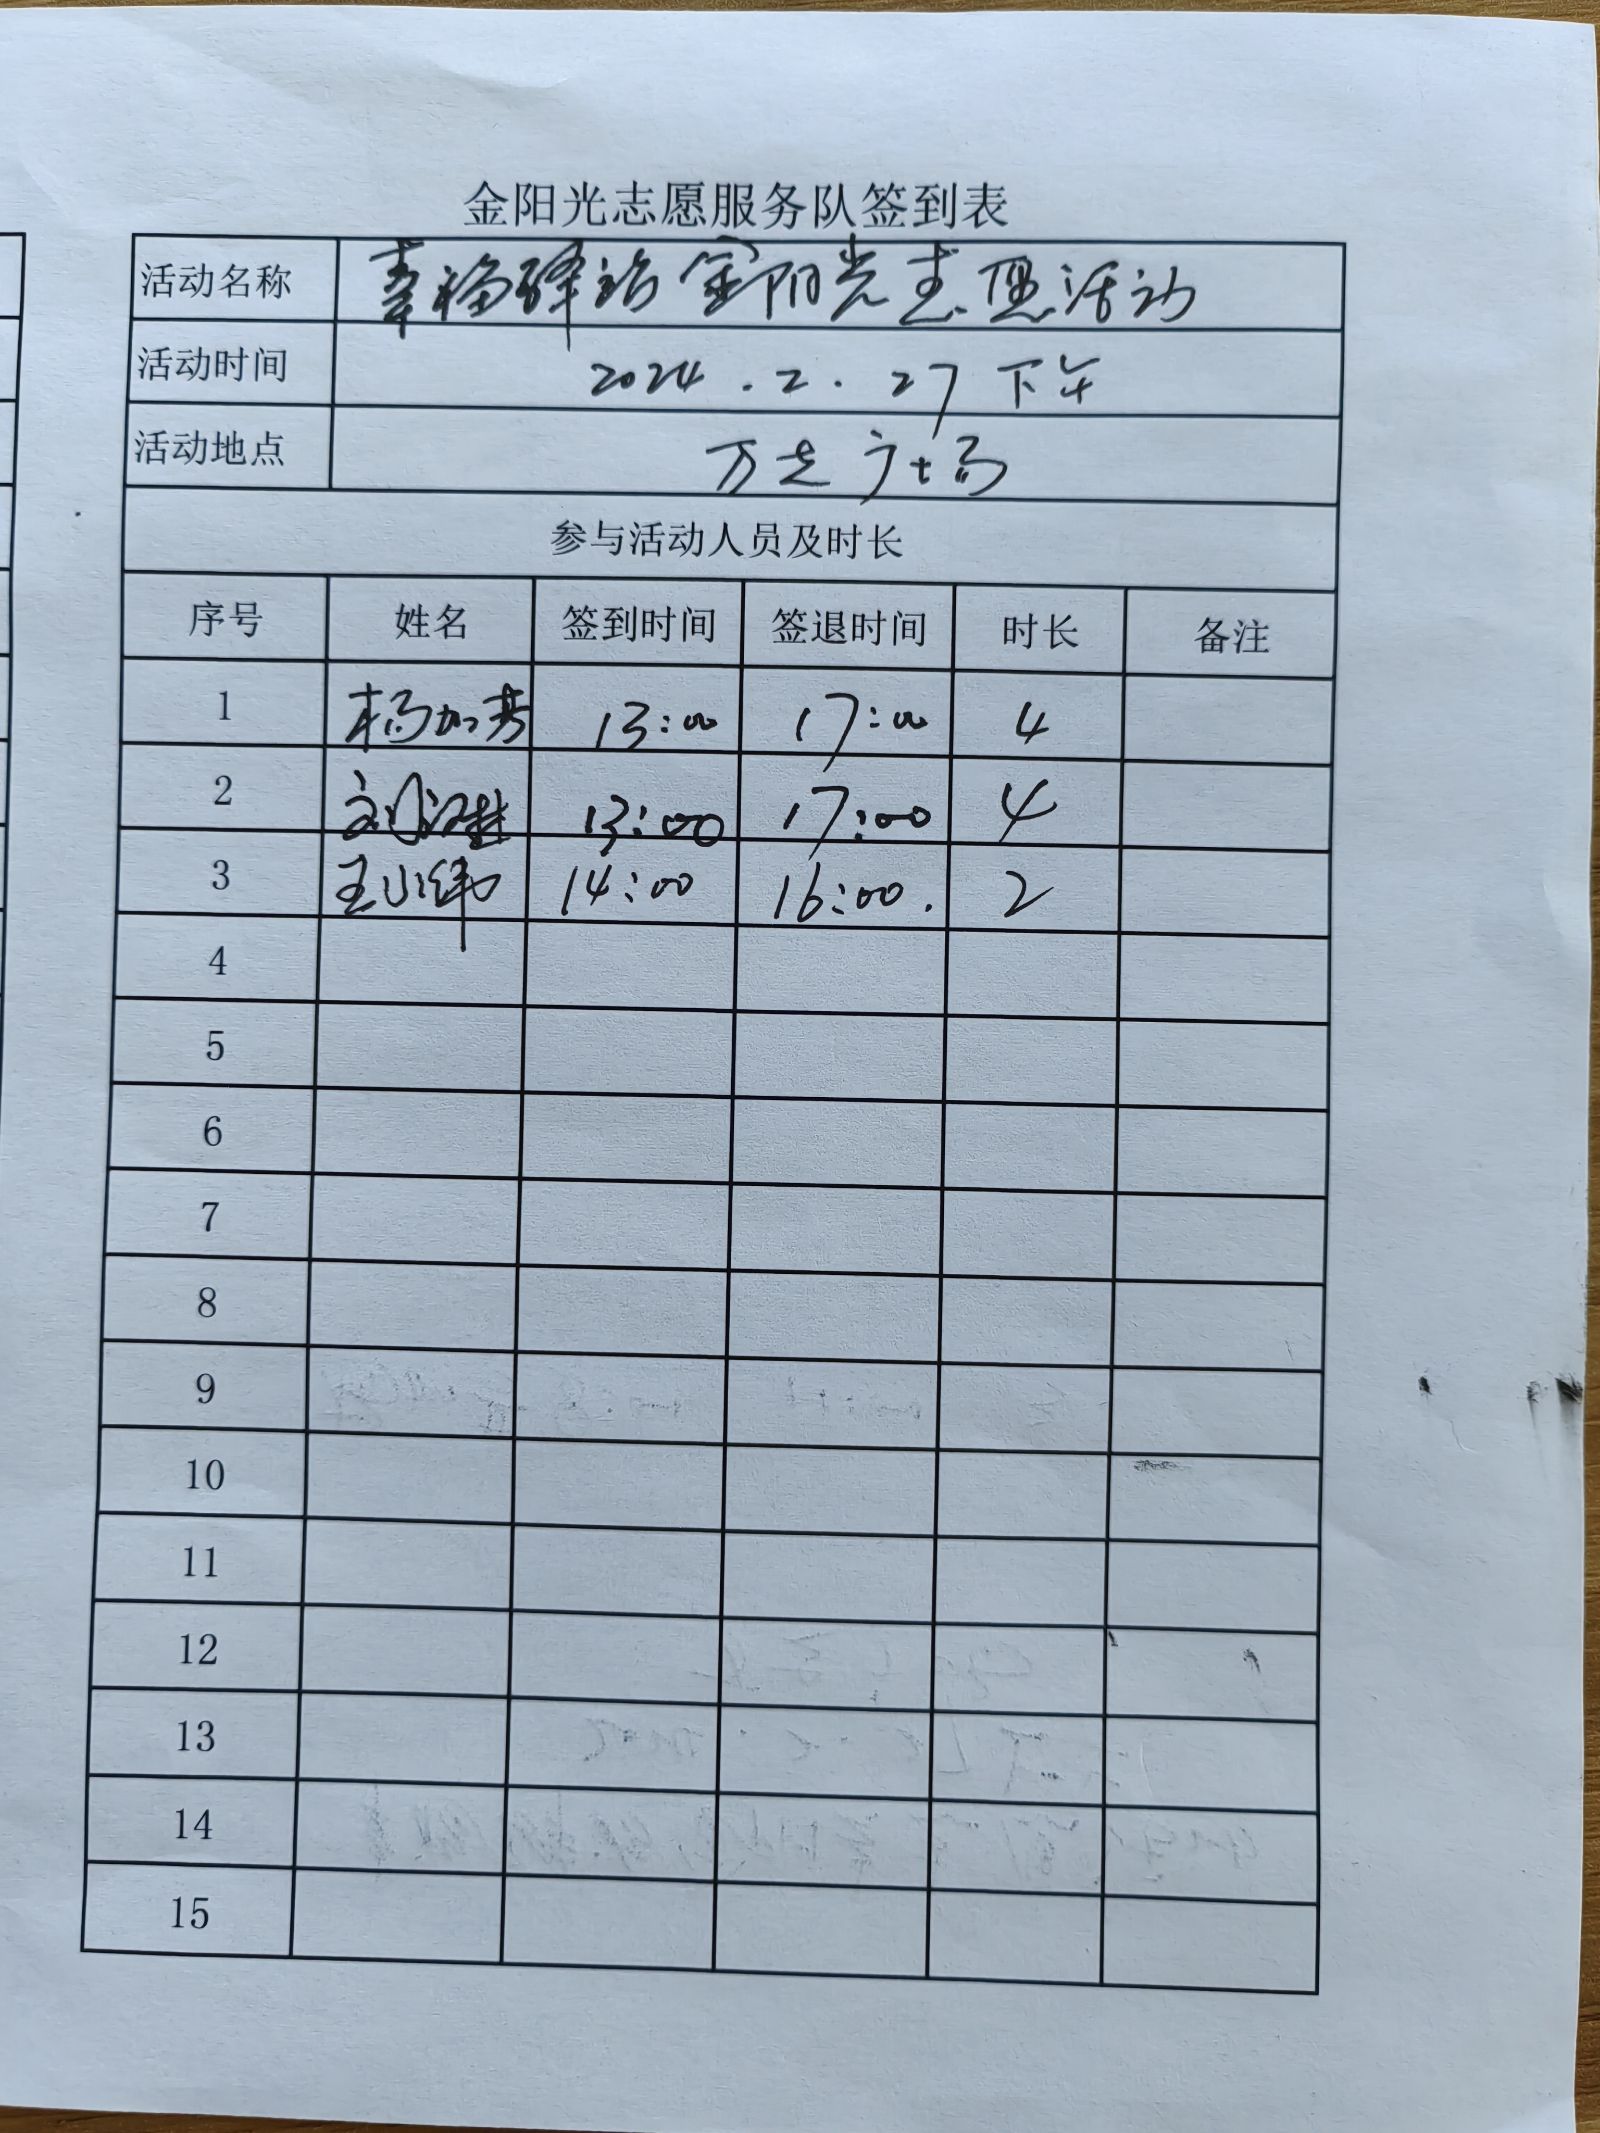 金阳光志愿服务队签到表
活动名称 幸福驿站金阳光志愿活动
活动时间 2024.2.27下午
活动地点 万达广场
参与活动人员及时长
序号 姓名 签到时间 签退时间 时长 备注
1 杨加芳 13:00 17:00 4
2 刘 13:00 17:00 4
3 王小伟 14:00 16:00. 2
4
5
6
7
8
9
10
11
12
13
14
15